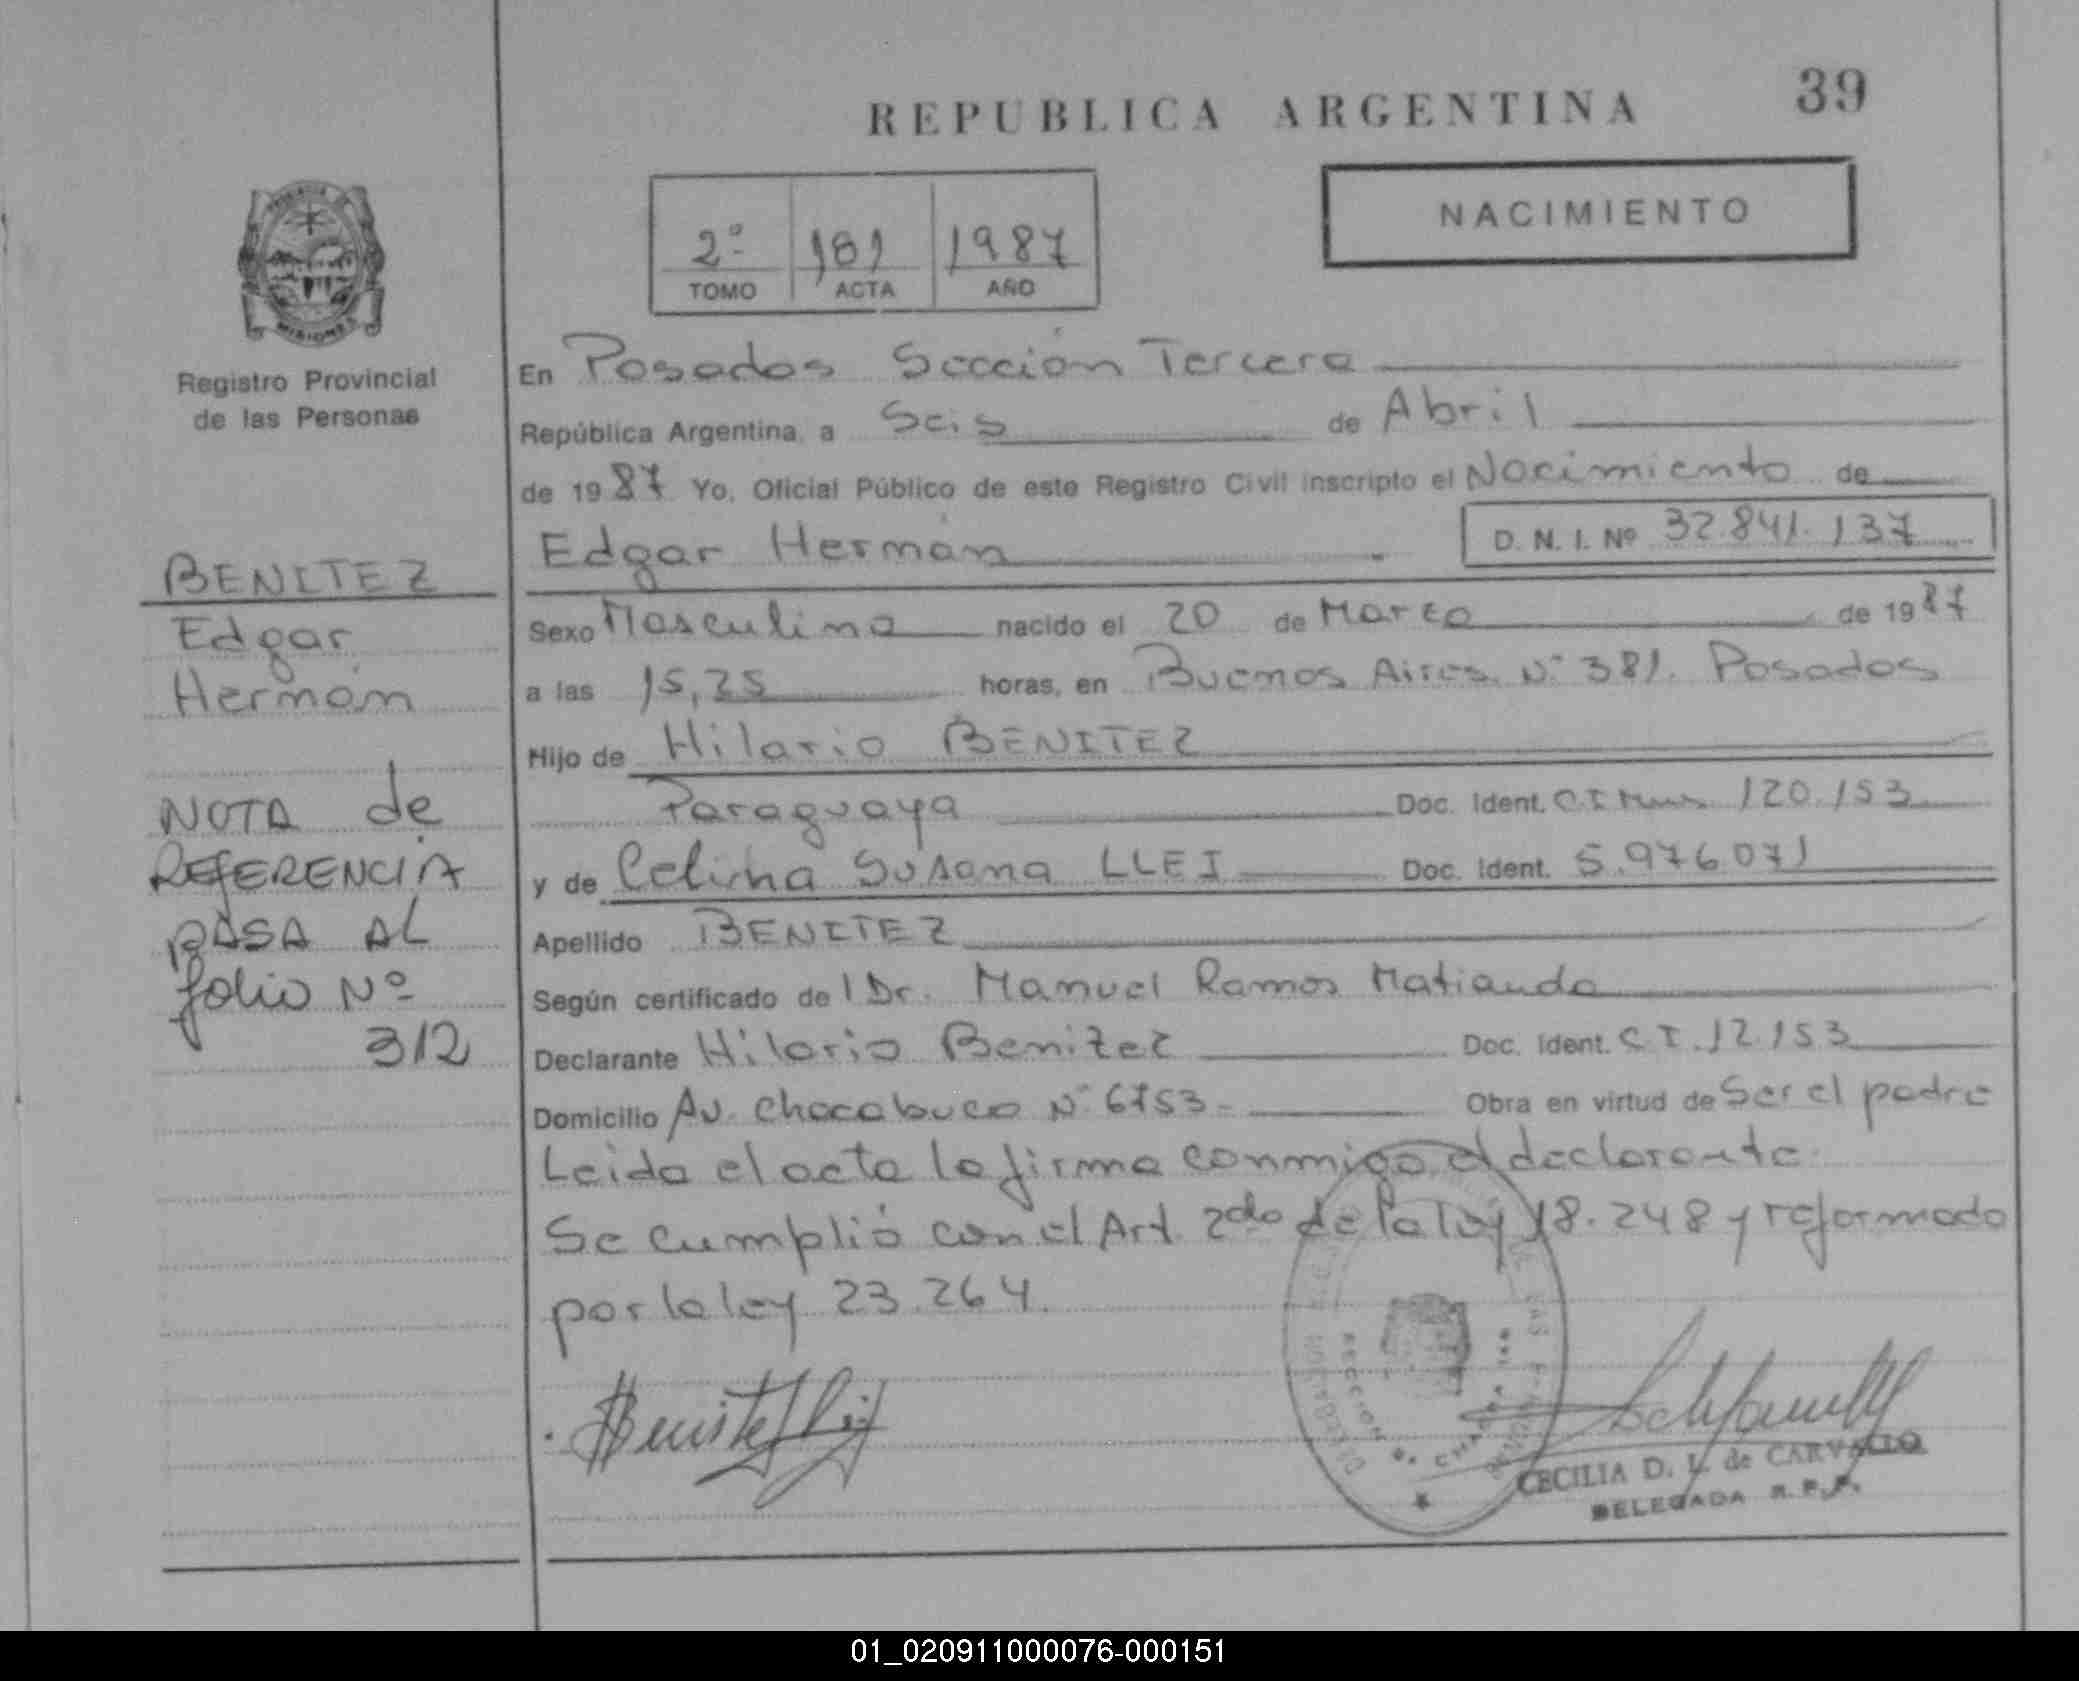 REPUBLICA ARGENTINA
39
NACIMIENTO
2º 181 1987
TOMO ACTA AÑO
MISIONES
Registro Provincial
de las Personas
BENITEZ
Edgar
Hermán
NOTA de
REFERENCIA
PASA AL
folio Nº
312
En Posadas Sección Tercera
República Argentina, a Seis de Abril
de 1987 Yo, Oficial Público de este Registro Civil inscripto el Nacimiento de
Edgar Hermán D. N. I. Nº 32.841.137
Sexo Masculino nacido el 20 de Marzo de 1987
a las 15,25 horas, en Buenos Aires Nº 381. Posadas
Hijo de Hilario BENITEZ
Paraguaya Doc. Ident. C.I. 120.153
y de Celinha Susana LLEI Doc. Ident. 5.976.071
Apellido BENITEZ
Según certificado del Dr. Manuel Ramos Matiauda
Declarante Hilario Benitez Doc. Ident. C.I. 12.153
Domicilio Av. Chacabuco Nº 6753 Obra en virtud de Ser el padre
Leida el acta la firma conmigo el declarante.
Se cumplió con el Art. 2do de la ley 18.248 y reformado
por la ley 23.264.
CECILIA D. L. de CARVALLO
DELEGADA R.P.P.
01_020911000076-000151